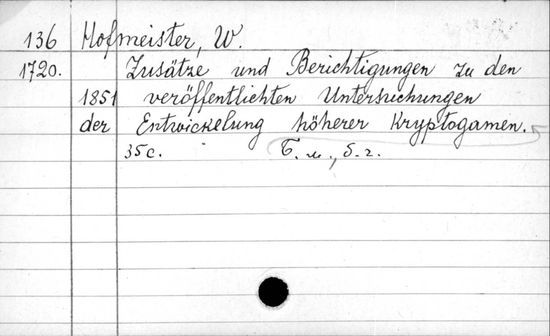 136 Hofmeister, W.
1720. Zusätze und Berichtigungen zu den
1851 veröffentlichten Untersuchungen
der Entwickelung höherer Kryptogamen.
35c. Б. м., б. г.